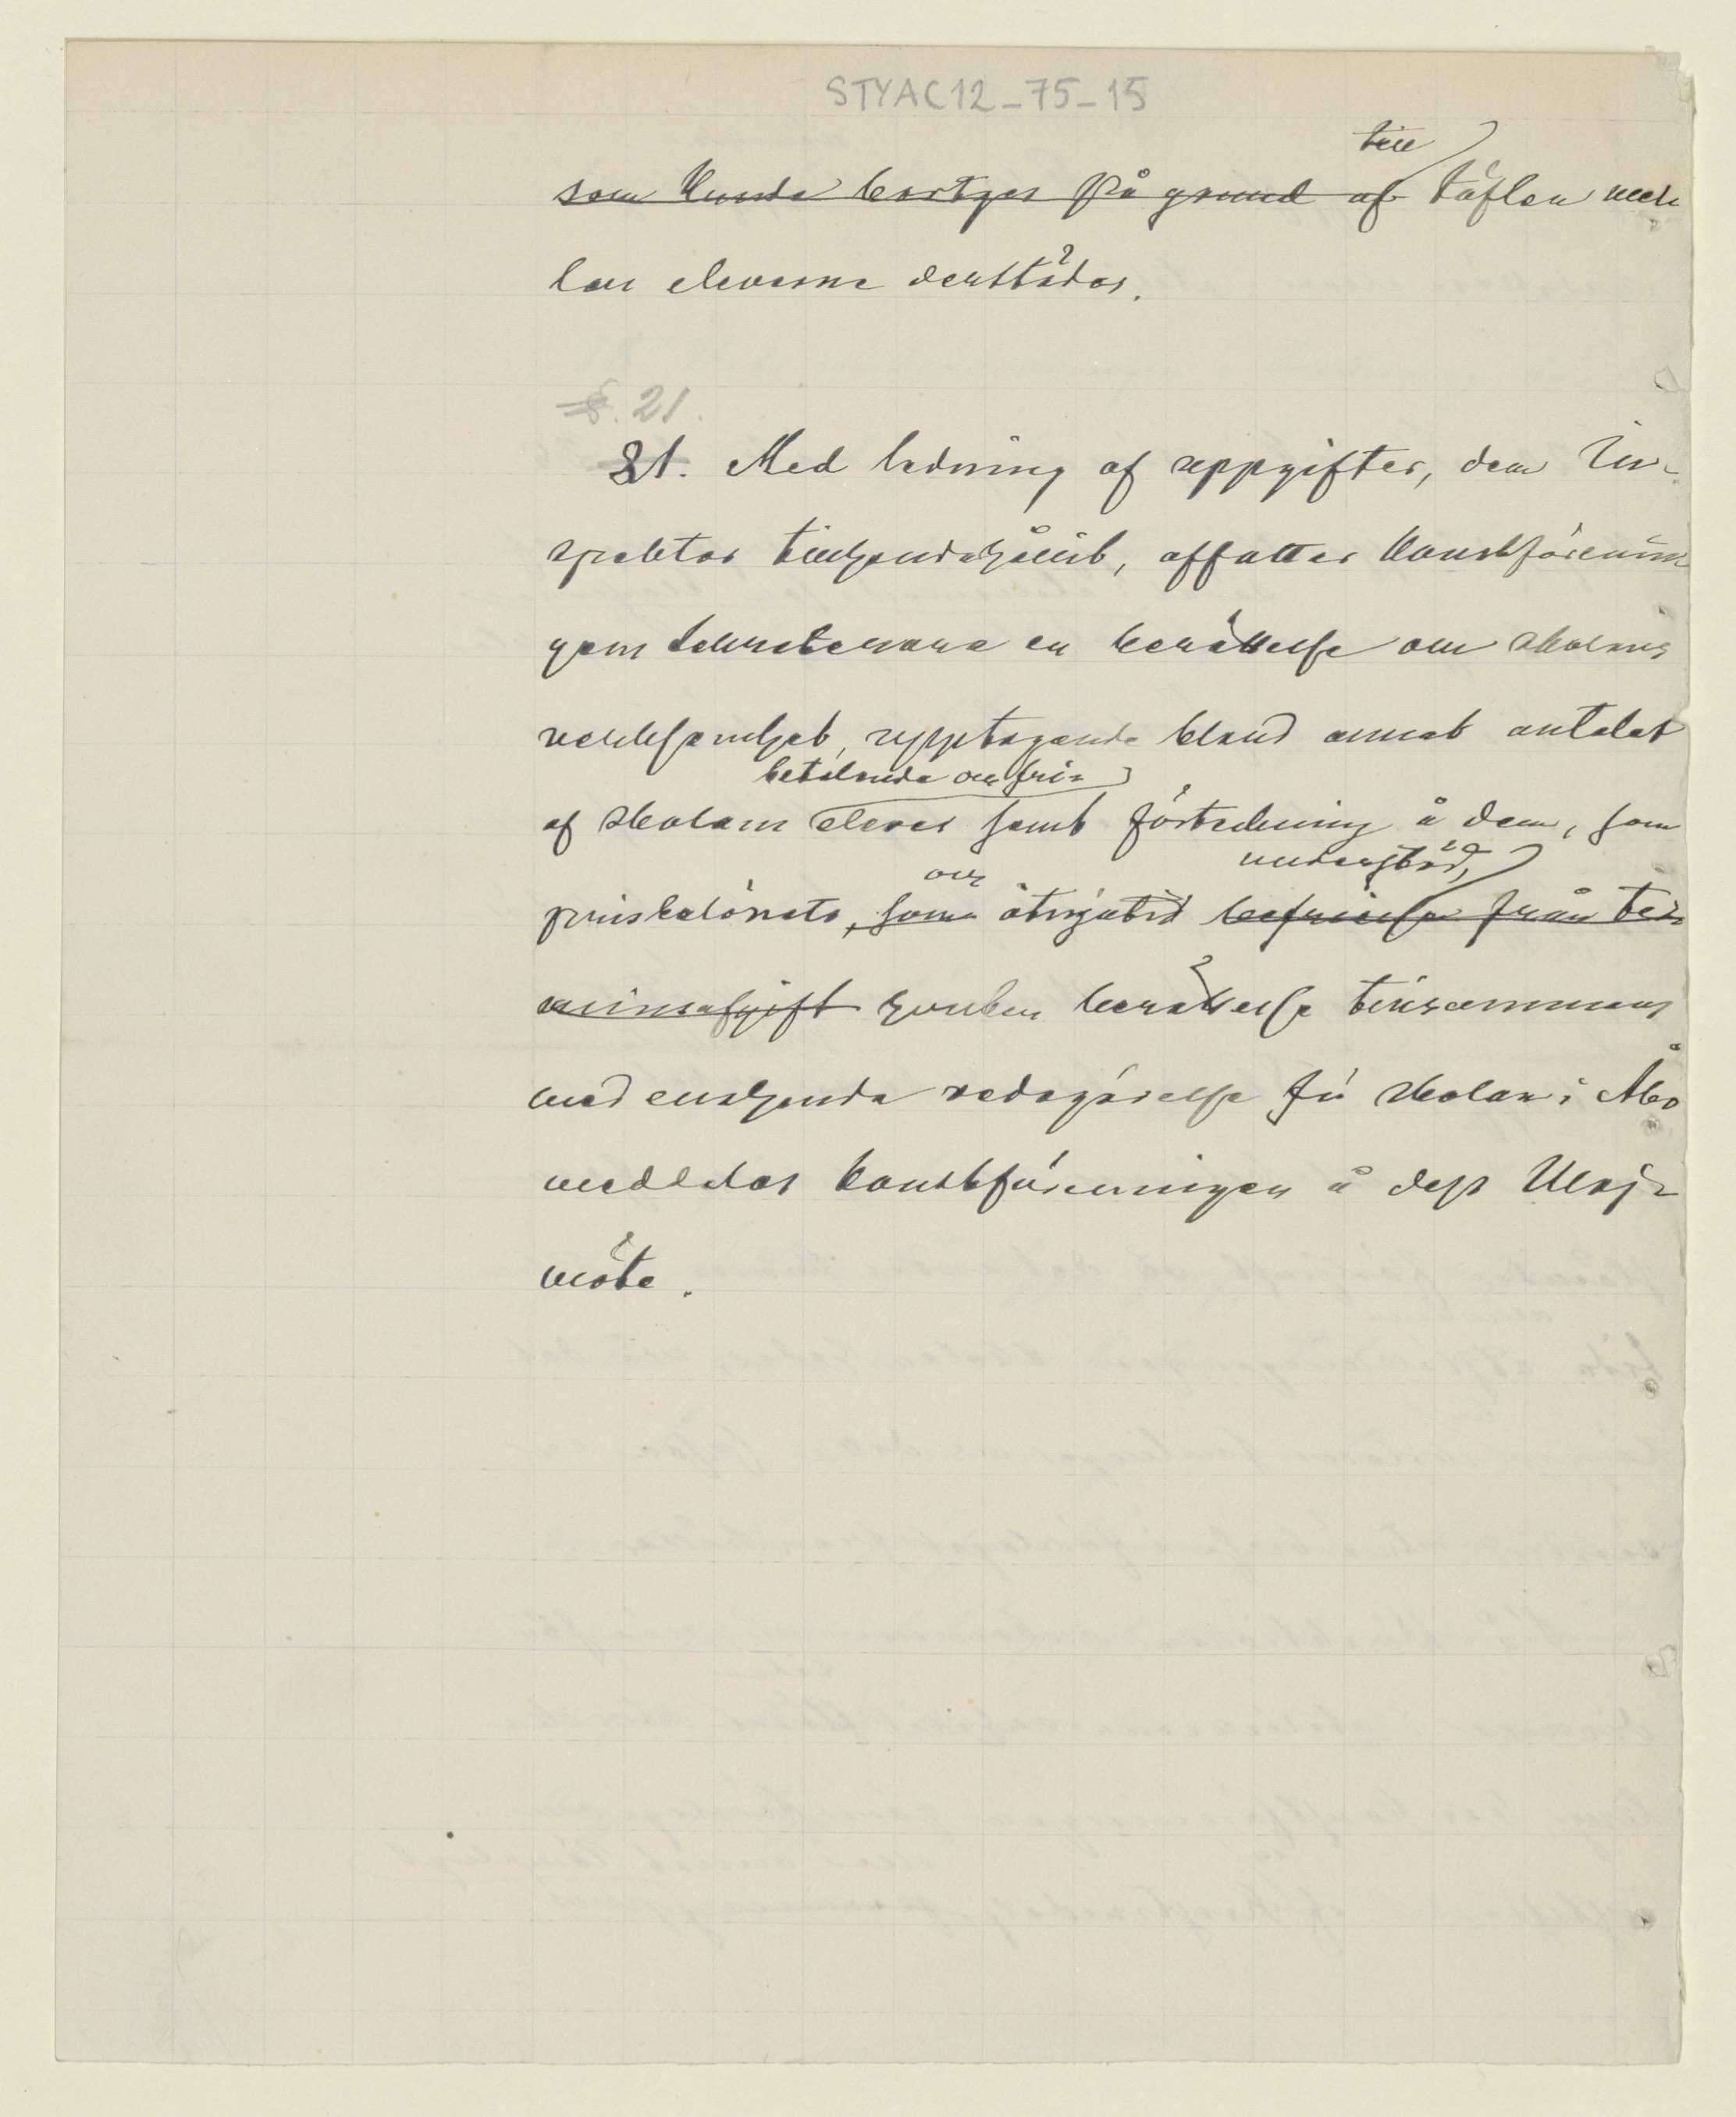 STYAC12_75-15
till
som kunde bortges på grund af täflan mel
lan eleverne derstädes.
§. 21.
21. Med ledning af uppgifter, dem In-
spektor tillhandahållit, affattar Konstförenin
gens sekreterare en berättelse om skolans
verksamhet, upptagande bland annat antalet
betalande och fri=
af skolans elever samt förteckning å dem, som
och understöd,
prisbelönats, som åtnjutid befrielse från ter=
minsafgift hvilken berättelse tillsammans
med enahanda redogörelse för skolan i Åbo
meddelas Konstföreningen å dess Maj=
möte.